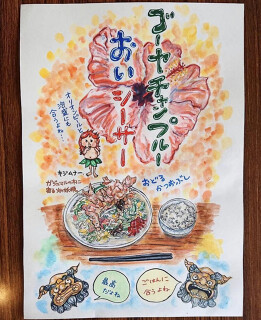 ゴーヤチャンプルー
おいシーサー
オリオンビールと
泡盛にも
合うよね…
キジムナー
ガジュマルの木に
おどる
かつおぶし
最高
だなね
ごはんに
合うよね